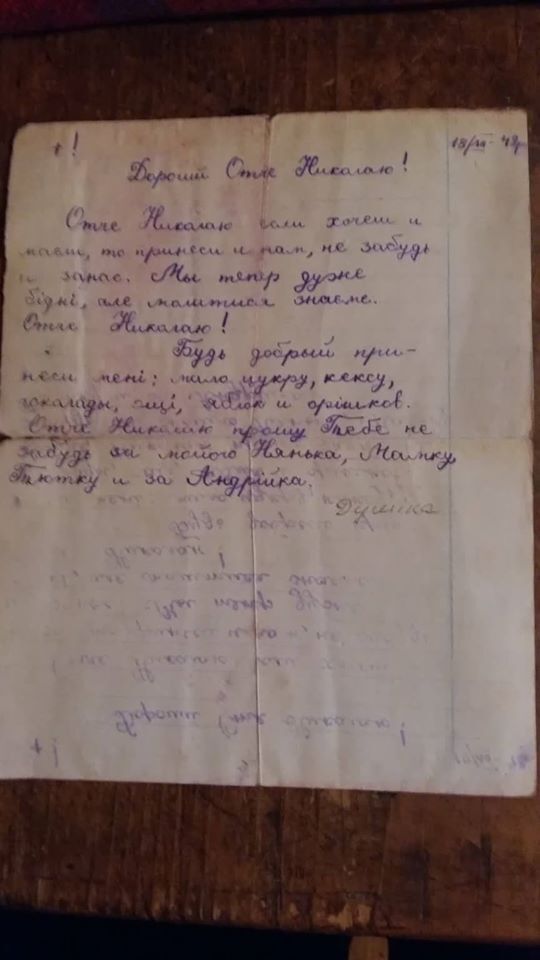 +!
18/XII 49р
Дорогий Отче Николаю!
Отче Николаю если хочеш и
маеш, то принеси и нам, не забудь
и занас. Мы тепер дуже
бідні, але молитися знаєме.
Отче Николаю!
Будь добрый при-
неси мені: мало цукру, кексу,
чоколады, яблок и орішков.
Отче Николаю прошу Тебе не
забудь за мойого Нянька, Мамку
Тютку и за Андрійка.